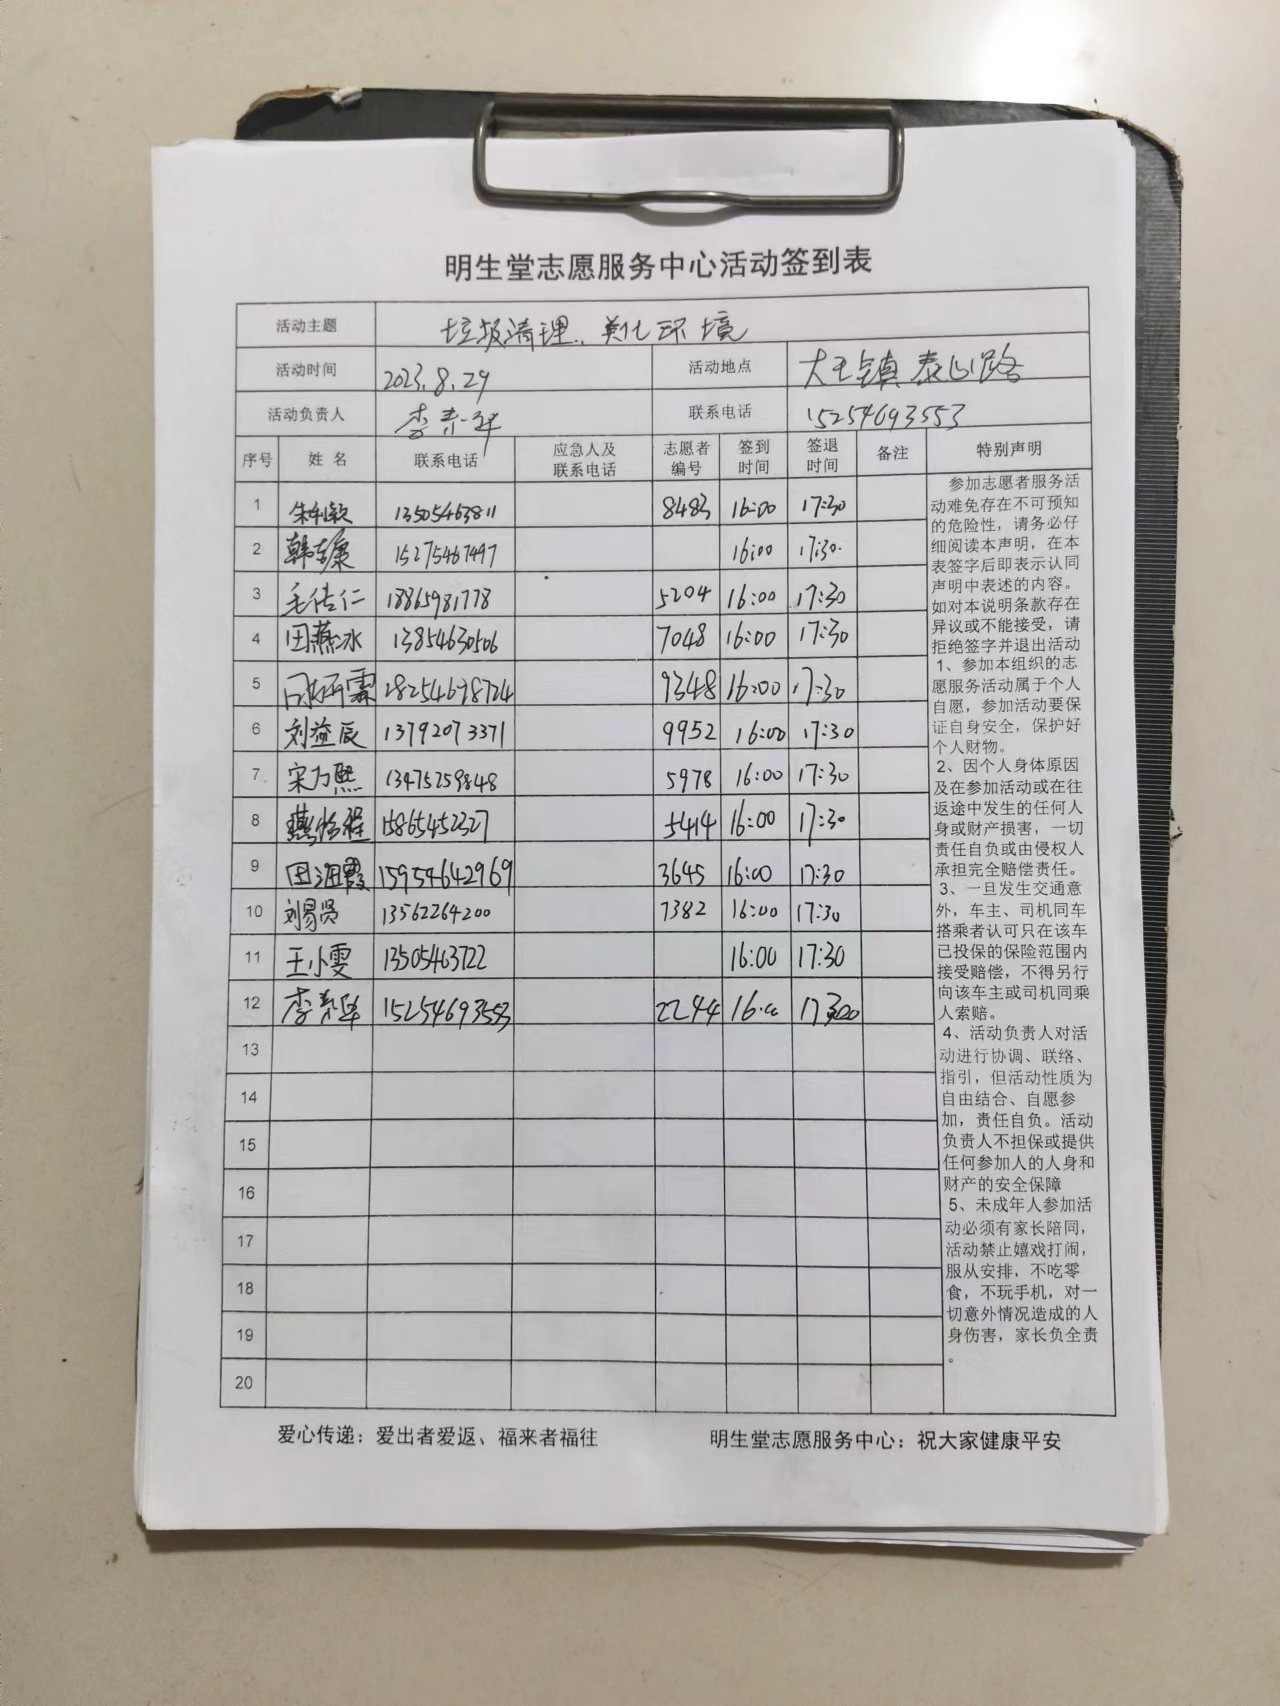 明生堂志愿服务中心活动签到表
活动主题 垃圾清理、美化环境
活动时间 2023.8.29 活动地点 大王镇泰山路
活动负责人 李秀华 联系电话 15254693553
序号 姓名 联系电话 应急人及联系电话 志愿者编号 签到时间 签退时间 备注 特别声明
1 13505463811 8483 16:00 17:30
2 15275467497 16:00 17:30.
3 毛佳仁 18865981778 5204 16:00 17:30
4 田燕冰 13854630506 7048 16:00 17:30
5 18254698724 9348 16:00 17:30
6 刘益辰 13792073371 9952 16:00 17:30
7 宋力熙 13475259848 5978 16:00 17:30
8 15865452327 5414 16:00 17:30
9 田海霞 15954642969 3645 16:00 17:30
10 刘易贤 13562264200 7382 16:00 17:30
11 王小雯 13505463722 16:00 17:30
12 李秀华 15254693553 2244 16:00
13
14
15
16
17
18
19
20
参加志愿者服务活
动难免存在不可预知
的危险性，请务必仔
细阅读本声明，在本
表签字后即表示认同
声明中表述的内容。
如对本说明条款存在
异议或不能接受，请
拒绝签字并退出活动
1、参加本组织的志
愿服务活动属于个人
自愿，参加活动要保
证自身安全，保护好
个人财物。
2、因个人身体原因
及在参加活动或在往
返途中发生的任何人
身或财产损害，一切
责任自负或由侵权人
承担完全赔偿责任。
3、一旦发生交通意
外，车主、司机同车
搭乘者认可只在该车
已投保的保险范围内
接受赔偿，不得另行
向该车主或司机同乘
人索赔。
4、活动负责人对活
动进行协调、联络、
指引，但活动性质为
自由结合、自愿参
加，责任自负。活动
负责人不担保或提供
任何参加人的人身和
财产的安全保障
5、未成年人参加活
动必须有家长陪同，
活动禁止嬉戏打闹，
服从安排，不吃零
食，不玩手机，对一
切意外情况造成的人
身伤害，家长负全责
。
爱心传递：爱出者爱返、福来者福往 明生堂志愿服务中心：祝大家健康平安